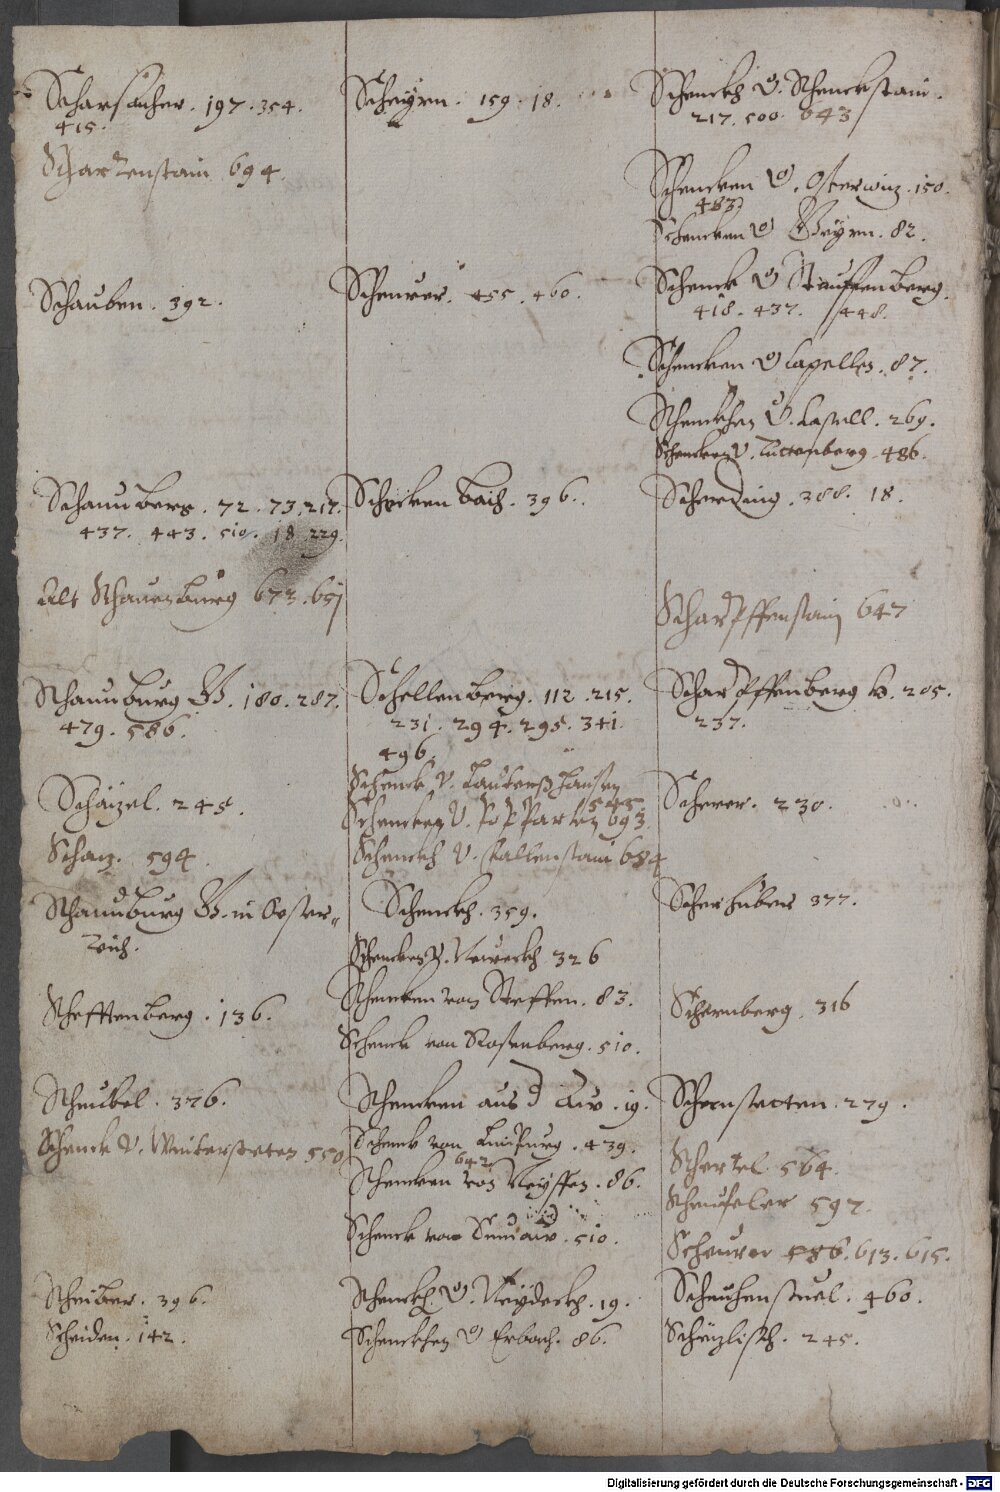 Scharsacher . 197 . 354 .
415 .
Scharzenstain 694 .
Schauben . 392 .
Schaunberg . 72 . 73 . 217 .
437 . 443 . 510 . 18 . 229 .
Alt Schauenburg 673 . 651
Schaunburg G . 180 . 287 .
479 . 586 .
Schäizel . 245 .
Schanz . 594 .
Schaunburg G . in Oster=
reich .
Schefftenberg . 136 .
Scheubel . 376 .
Schenck v . Wintersteten 550
Scheiber . 396 .
Scheiden . 142 .
Scheyrn . 159 . 18 .
Scheurer . 455 . 460 .
Scheckenbach . 396 .
Schellenberg . 112 . 215 .
231 . 294 . 295 . 341 .
496 .
Schenck v .
545 .
Schencken v . 693 .
Schenckh v . Kallenstain 684
Schenckh . 359 .
Schencken v . Neueckh 326
Schencken von Steffen . 83 .
Schenck von Rosenberg . 510 .
Schencken aus d Aw . 19 .
Schenck von Limpurg . 439 .
642
Schencken von Neyffen . 86 .
Schenck von . 510 .
Schenckh v . Neydeckh . 19 .
Schenckhen v Erbach . 86 .
Schenckh v . Schenckstain .
217 . 500 . 643
Schencken v . Osterwiz . 150 .
463
Schencken v Geyrn . 82 .
Schenck v Stauffenberg .
418 . 437 . 448 .
Schencken v Capellen . 87 .
Schenckhen v . Castell . 269 .
Schencken v . Tuttenberg . 486 .
Scherding . 388 . 18 .
Scharpffenstain 647
Scharpffenberg H . 205 .
237 .
Scherer . 230 .
Scherhuber 377 .
Schernberg . 316
Schernstetten . 279 .
Schertel . 564 .
Scheufeler 597 .
Scheurer 586 . 613 . 615 .
Scheuhenstuel . 460 .
Scheyzlisch . 245 .
Digitalisierung gefördert durch die Deutsche Forschungsgemeinschaft - DFG